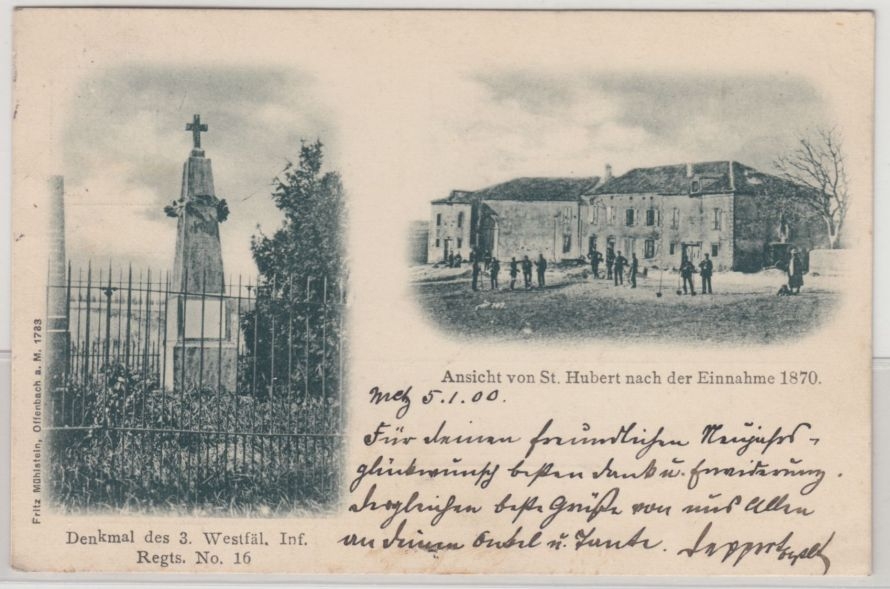 Fritz Mühlstein, Offenbach a. M. 1783
Denkmal des 3. Westfäl. Inf.
Regts. No. 16
Ansicht von St. Hubert nach der Einnahme 1870.
Metz 5.1.00.
Für deinen freundlichen Neujahrs-
glückwunsch besten Dank u. Erwiderung.
Desgleichen beste Grüße von uns Allen
an deinen Onkel u. Tante.